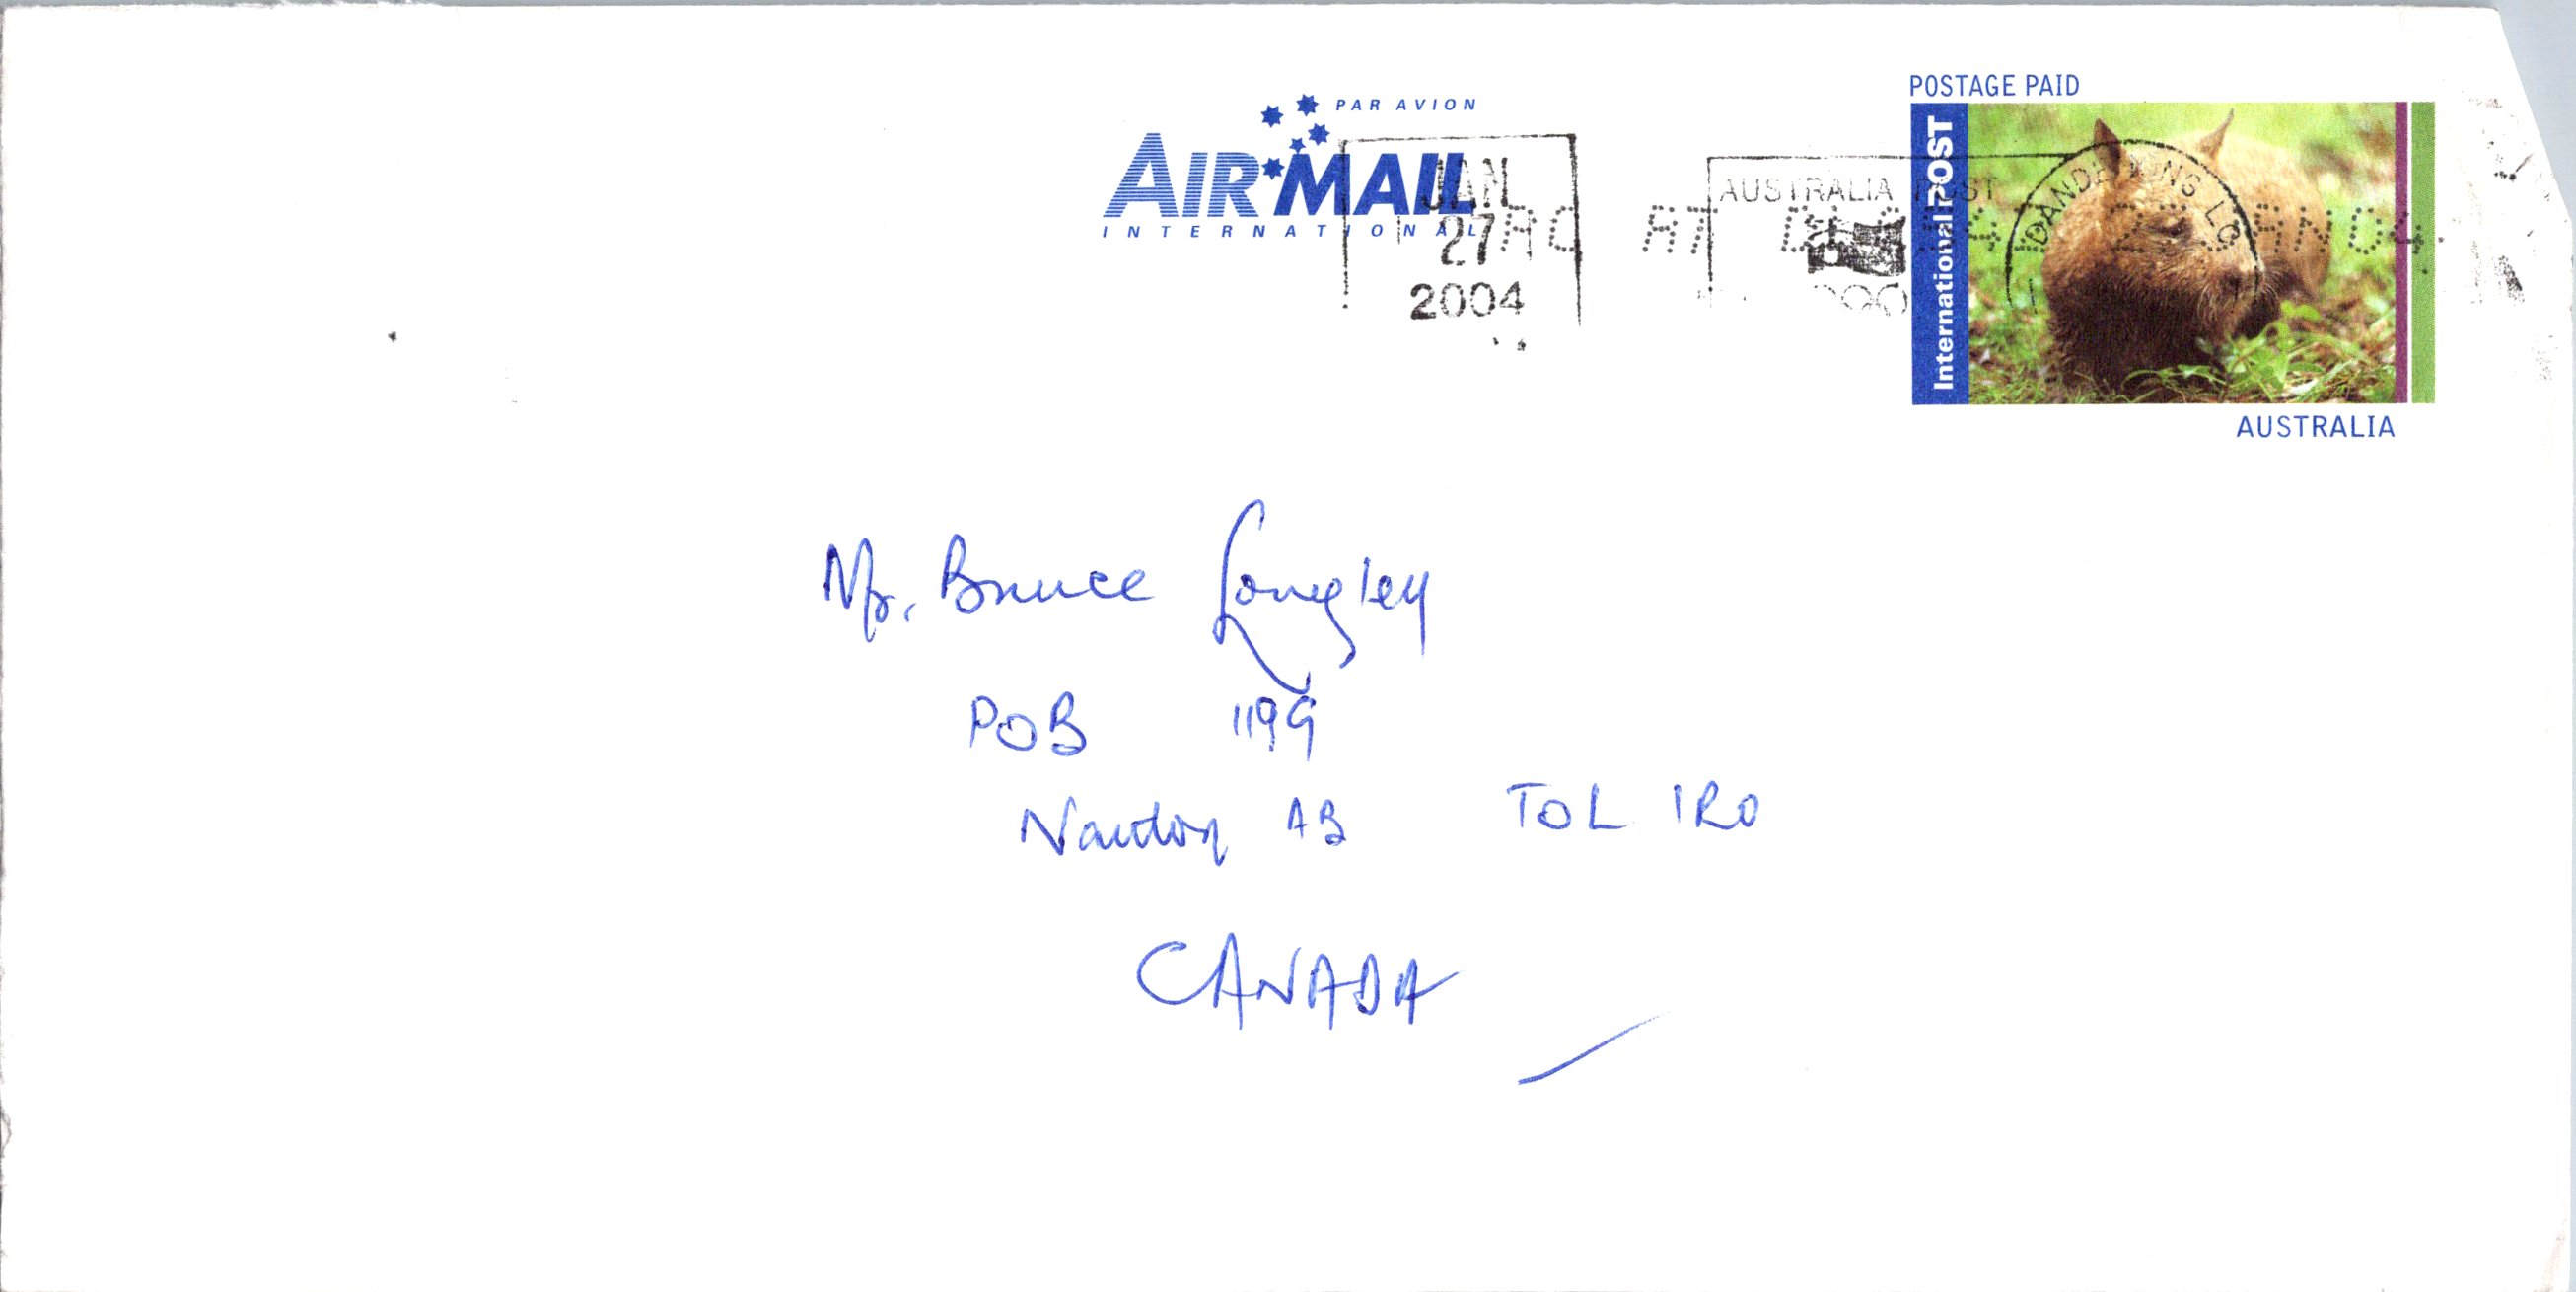 POSTAGE PAID
PAR AVION
AIR MAIL
INTERNATIONAL
International POST
AUSTRALIA POST
JAN
27
2004
AUSTRALIA
Mr. Bruce Longley
POB 1199
Nanton AB T0L 1R0
CANADA